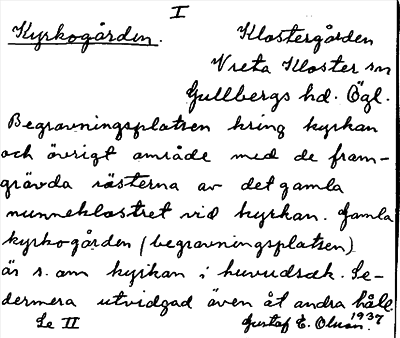 I
Kyrkogården.
Klostergården
Vreta Kloster sn
Gullbergs hd. Ögl.
Begravningsplatsen kring kyrkan
och övrigt område med de fram-
grävda resterna av det gamla
nunneklostret vid kyrkan. Gamla
kyrkogården (begravningsplatsen)
är s. om kyrkan i huvudsak. Se-
dermera utvidgad även åt andra håll.
Se II
Gustaf E. Olson. 1937